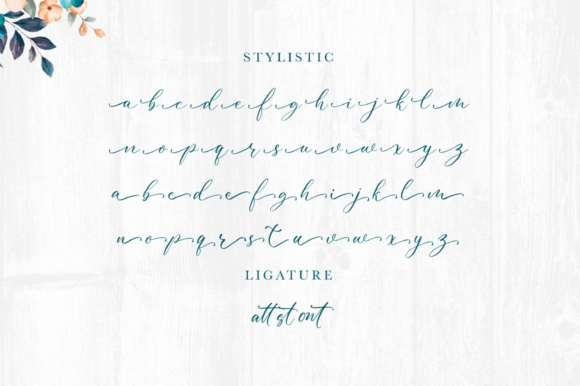 STYLISTIC
a b c d e f g h i j k l m
n o p q r s u v w x y z
a b c d e f g h i j k l m
n o p q r s t u v w x y z
LIGATURE
att st ont